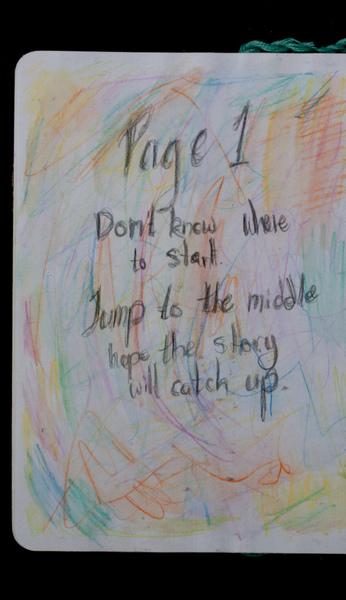 Page 1
Don't know where
to start.
Jump to the middle
hope the story
will catch up.